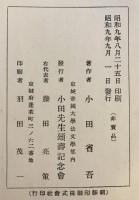 昭和九年八月二十五日印刷
昭和九年九月一日發行
(非賣品)
著作者 小田省吾
京城帝國大學法文學部内
發行者 小田先生頌壽記念會
右代表者 藤田亮策
京城府蓬萊町三ノ六二番地
印刷者 羽田茂一
(行印社會式株刷印鮮朝)